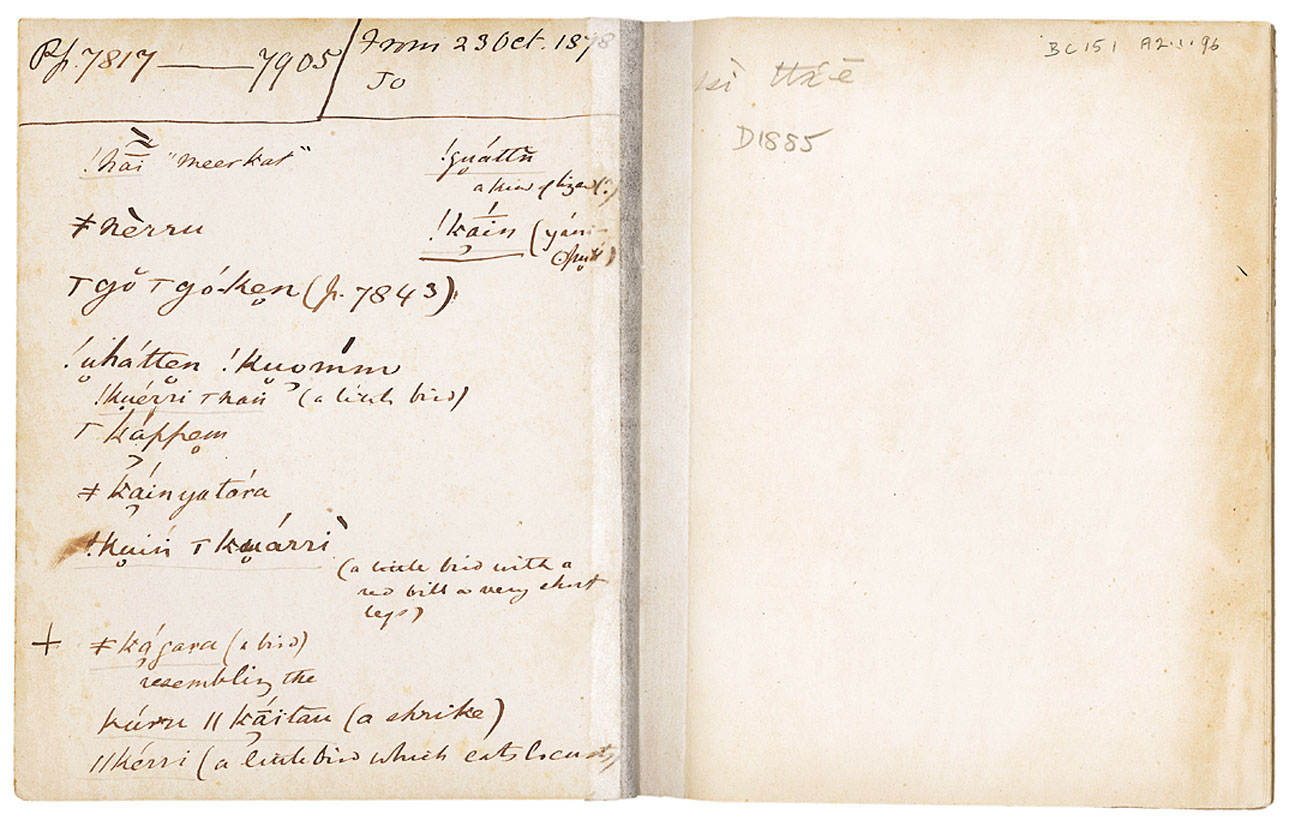 Pp. 7817 — 7905 From 23 Oct. 1878
To
!hãī "meerkat"
!guáttŭ
a kind of lizard (?)
≠nèrru
!káin (yáni-
T gŏ T gó-ken (p. 7843)
!uhátten !kuomm
!kuérri T nau (a little bird)
T káppem
≠káinyatára
!kuiń T kuárrì
(a little bird with a
red bill & very short
legs)
+ ≠kágara (a bird)
resembling the
kúru ǁ káitau (a shrike)
ǁkérri (a little bird which eats locusts)
BC 151 A2.1.96
D1885